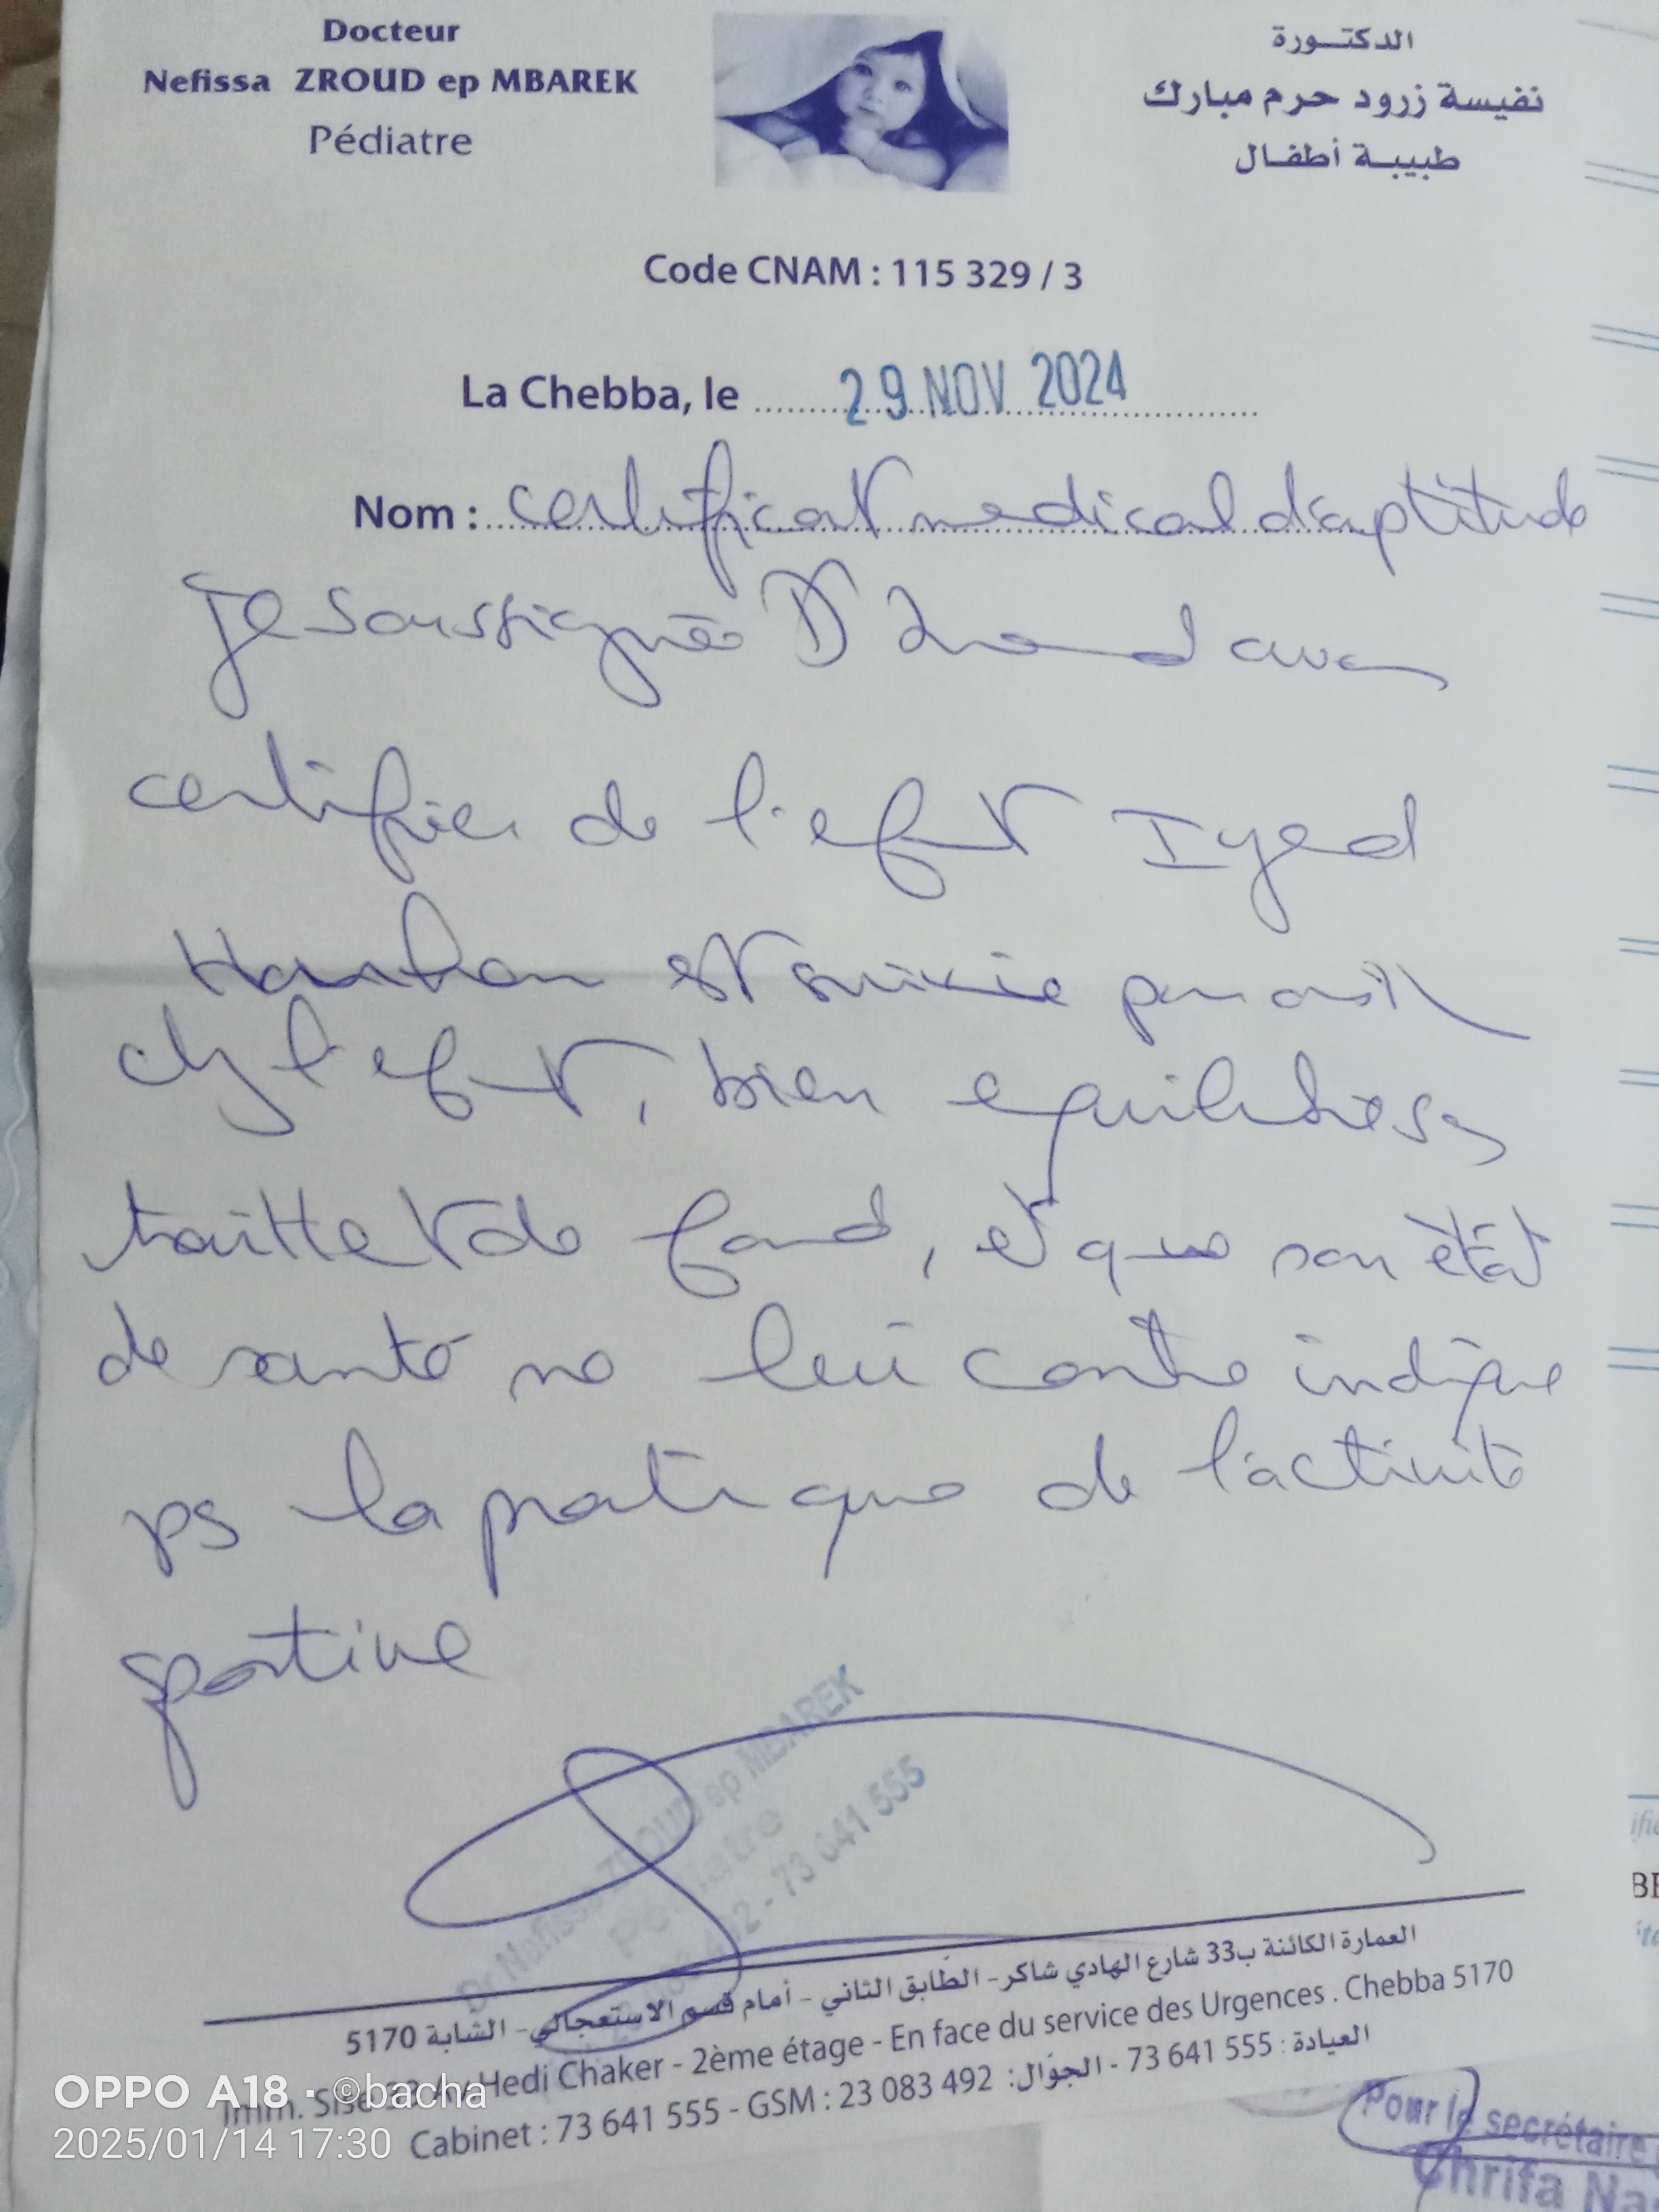 Docteur
Nefissa ZROUD ep MBAREK
Pédiatre
الدكتـورة
نفيسة زرود حرم مبارك
طبيبـة أطفـال
Code CNAM : 115 329 / 3
La Chebba, le 29 NOV 2024
Nom : certificat medical d'aptitude
Je soussignée Dr
certifier de l'efnt Iyed
est suivie pour
chz l'efnt, bien equilibré ss
de fond, et que son état
de santé ne lui contre indique
ps la pratique de l'activité
sportive
Dr Nafissa ZROUD ep MBAREK
Pédiatre
- 73 641 555
العمارة الكائنة ب33 شارع الهادي شاكر - الطابق الثاني - أمام قسم الاستعجالي - الشابة 5170
Imm. Sise 33 Av Hedi Chaker - 2ème étage - En face du service des Urgences . Chebba 5170
Cabinet : 73 641 555 - GSM : 23 083 492 :العيادة : 73 641 555 - الجوّال
Pour le secrétaire
Chrifa
OPPO A18 · ©bacha
2025/01/14 17:30